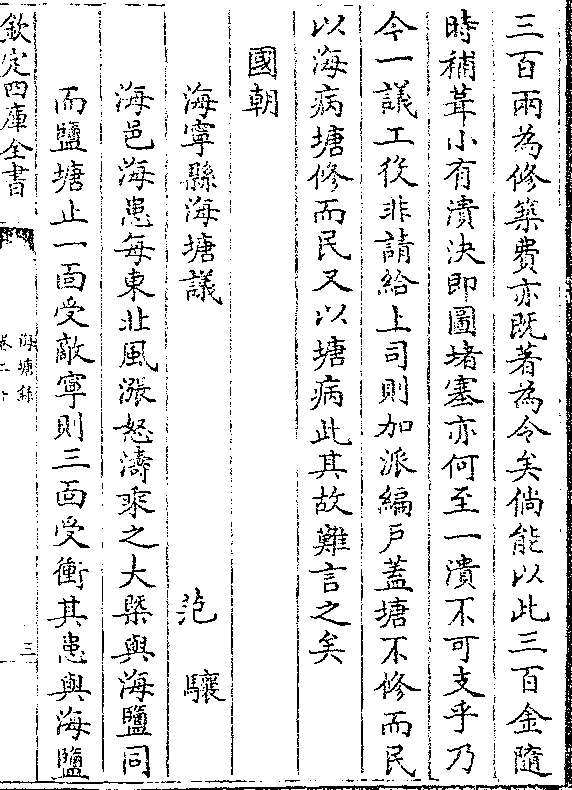 三百兩為修築費亦既著為令矣倘能以此三百金隨
時補葺小有潰決即圖堵塞亦何至一潰不可支乎乃
今一議工役非請給上司則加派編戸蓋塘不修而民
以海病塘修而民又以塘病此其故難言之矣
國朝
海寧縣海塘議　范驤
海邑海患每東北風漲怒濤乘之大槩與海鹽同
而鹽塘止一面受敵寧則三面受衝其患與海鹽
欽定四庫全書
海塘錄
卷二十
三